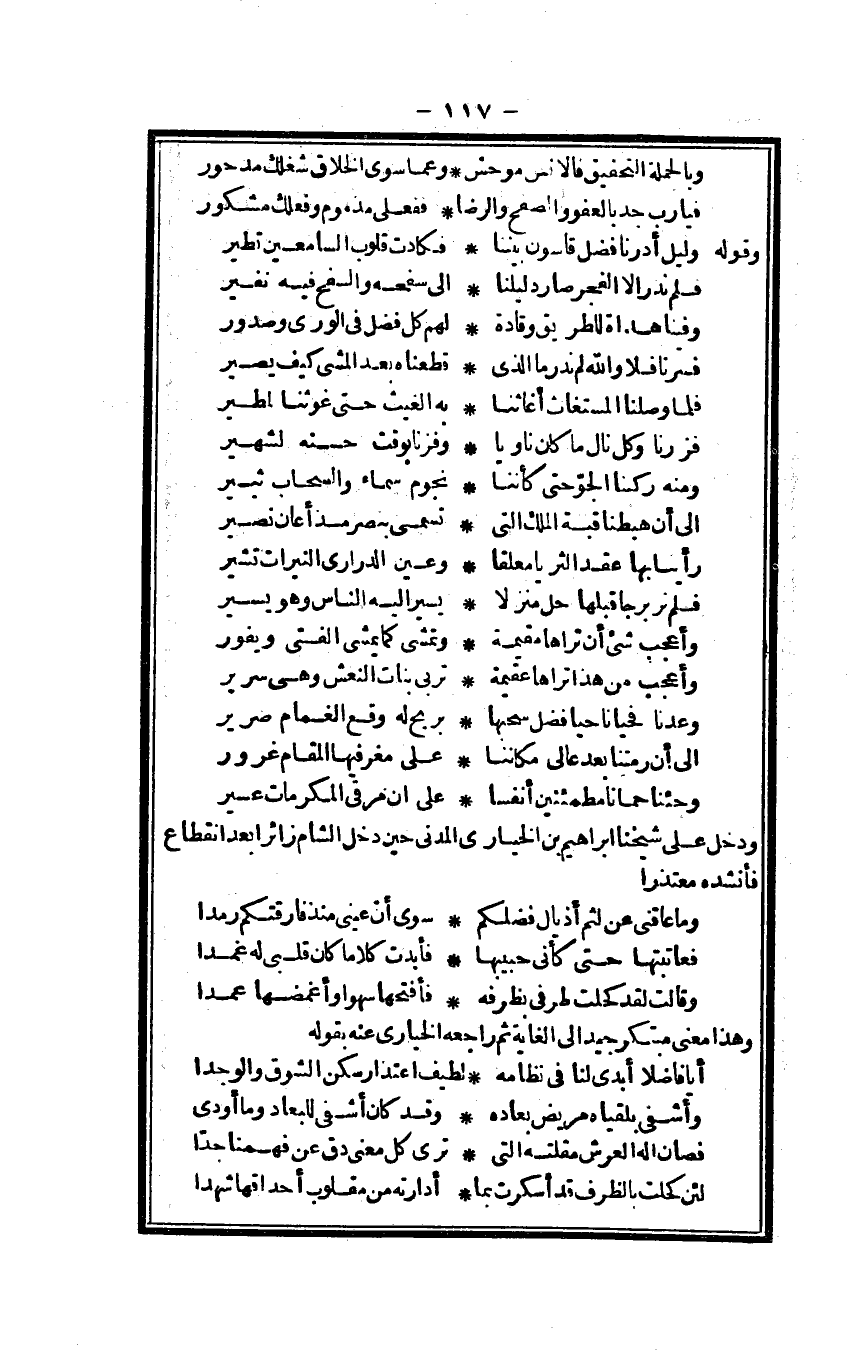 – ١١٧ –
وبالجملة التحقيق فالانس موحش * وعما سوى الخلاق شغلك مدحور
فيارب جد بالعفو والصفح والرضا * ففعلى مذموم وفعلك مشكور
وقوله وليل أدرنا فضل قاسون بيننا * فكادت قلوب السامعين تطير
فلم ندر الا الفجر صار دليلنا * الى سفحه والسفح فيه نفير
وفينا هداة للطريق وقادة * لهم كل فضل فى الورى وصدور
فسرنا فلا والله لم ندر ما الذى * قطعناه بعد المشى كيف يصير
فلما وصلنا المستغاث أغاثنا * به الغيث حتى غوثنا لطير
فزرنا وكل نال ما كان ناويا * وفزنا بوقت حسنه لشهير
ومنه ركبنا الجوّ حتى كأننا * نجوم سماء والسحاب ثبير
الى أن هبطنا قبة الملك التى * تسمى بنصر مذ أعان نصير
رأينا بها عقد الثريا معلقا * وعين الدرارى النيرات تشير
فلم نر برجا قبلها حل منزلا * يسير اليه الناس وهو يسير
وأعجب شئ أن تراها مقيمة * وتمشى كما يمشى الفتى ويفور
وأعجب من هذا تراها عقيمة * تربى بنات النعش وهى سرير
وعدنا فحيانا حيا فضل سحبها * بريح له وقع الغمام صرير
الى أن رمتنا بعد عالى مكاننا * على مغر فيها المقام غرور
وجئنا حمانا مطمئنين أنفسا * على ان مرقى المكرمات عسير
ودخل على شيخنا ابراهيم بن الخيارى المدنى حين دخل الشام زائرا بعد انقطاع
فأنشده معتذرا
وما عاقنى عن لثم أذيال فضلكم * سوى أنّ عينى منذ فارقتكم رمدا
فعاتبتها حتى كأنى حبيبها * فأبدت كلاما كان قلبى له غمدا
وقالت لقد كحلت طرفى بظرفه * فأفتحها سهوا وأغمضها عمدا
وهذا معنى مبتكر جيد الى الغاية ثم راجعه الخيارى عنه بقوله
أيا فاضلا أبدى لنا فى نظامه * لطيف اعتذار سكن الشوق والوجدا
وأشفى بلقياه مريض بعاده * وقد كان أشفى للبعاد وما أودى
فصان اله العرش مقلته التى * ترى كل معنى دق عن فهمنا جدّا
لئن كحلت بالظرف قد أسكرت بما * أدارته من مقلوب أحداقها شهدا